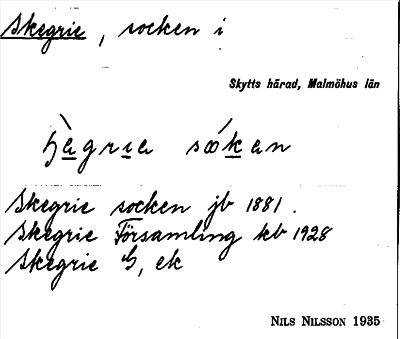 Skegrie, socken i
Skytts härad, Malmöhus län
Skegrie socken jb 1881.
Skegrie Församling kb 1928
Skegrie G, ek
NILS NILSSON 1935